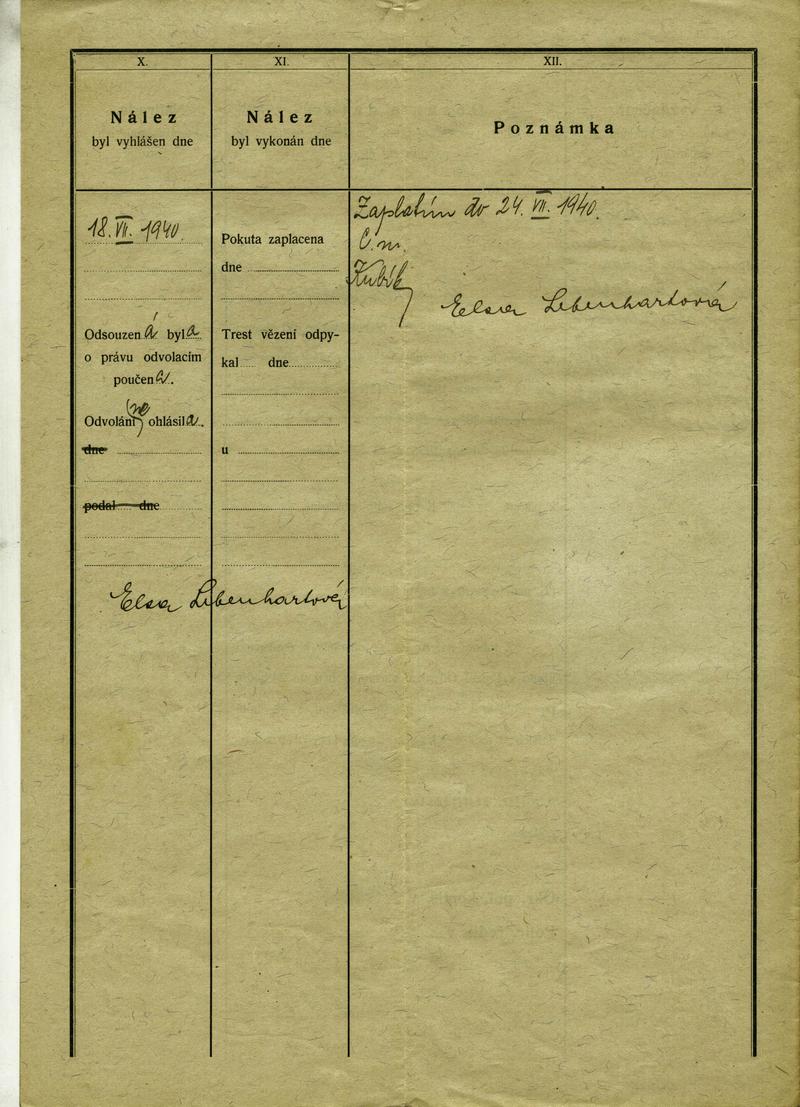 X.
Nález
byl vyhlášen dne
18. VII. 1940.
Odsouzená byla
o právu odvolacím
poučena.
Odvolání ne ohlásila.
dne
podal dne
Elsa Libenhartová
XI.
Nález
byl vykonán dne
Pokuta zaplacena
dne
Trest vězení odpy-
kal dne
u
XII.
Poznámka
Zaplatím do 24. VII. 1940.
Č. m.
Elsa Libenhartová